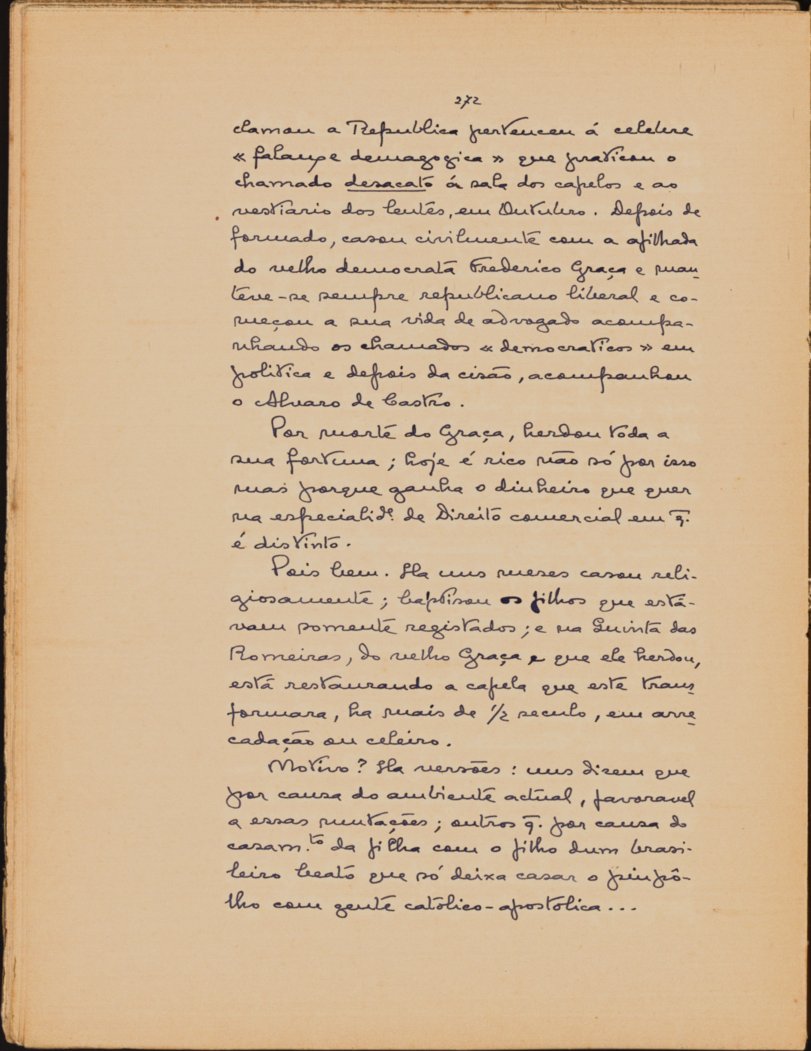 272
clamou a Republica pertenceu á celebre
« falange demagogica » que praticou o
chamado desacato á sala dos capelos e ao
vestiario dos lentes, em Outubro. Depois de
formado, casou civilmente com a afilhada
do velho democrata Frederico Graça e man-
teve-se sempre republicano liberal e co-
meçou a sua vida de advogado acompa-
nhando os chamados « democraticos » em
politica e depois da cisão, acompanhou
o Alvaro de Castro.
Por morte do Graça, herdou toda a
sua fortuna; hoje é rico não só por isso
mas porque ganha o dinheiro que quer
na especialid.e de Direito comercial em q̄.
é distinto.
Pois bem. Ha uns meses casou reli-
giosamente; baptisou os filhos que está-
vam somente registados; e na Quinta das
Romeiras, do velho Graça e que ele herdou,
está restaurando a capela que este trans-
formara, ha mais de 1/2 seculo, em arre-
cadação ou celeiro.
Motivo? Ha versões: uns dizem que
por causa do ambiente actual, favoravel
a essas mutações; outros q̄. por causa do
casam.to da filha com o filho dum brasi-
leiro beato que só deixa casar o pimpô-
lho com gente católico-apostolica...